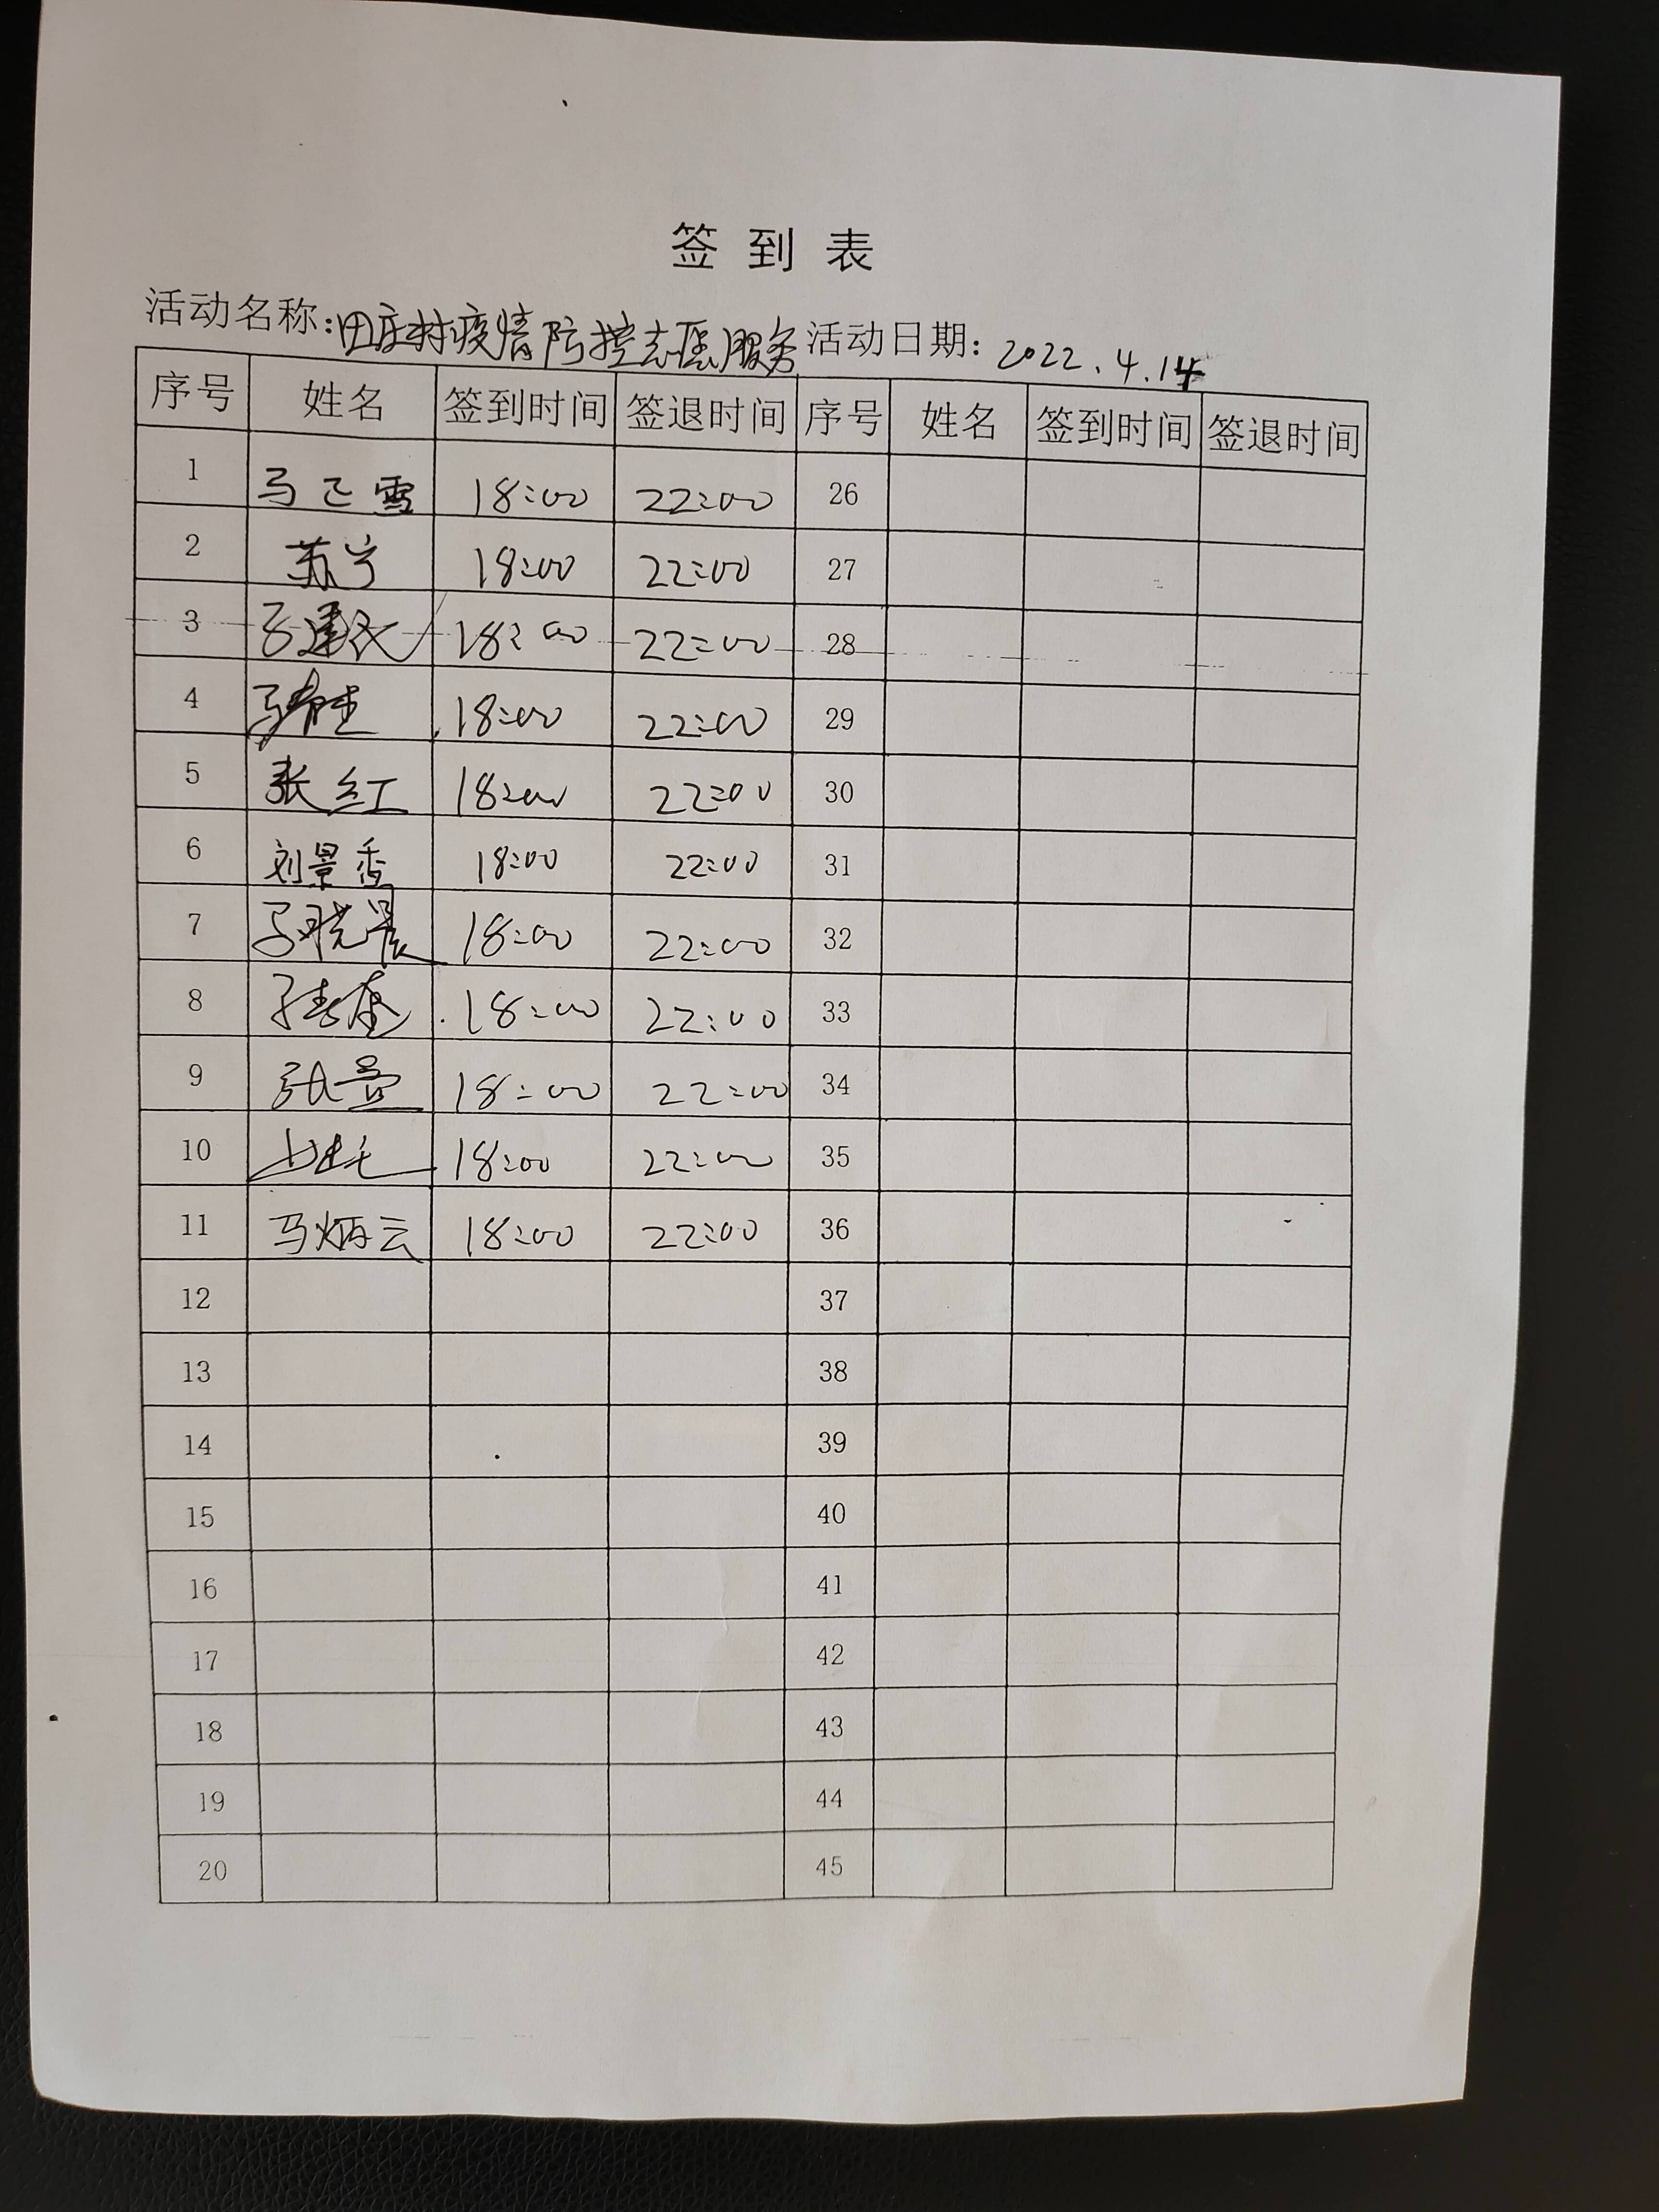 签到表
活动名称:田庄村疫情防控志愿服务 活动日期: 2022.4.14
序号 姓名 签到时间 签退时间 序号 姓名 签到时间 签退时间
1 马 雪 18:00 22:00 26
2 苏宁 18:00 22:00 27
3 18:00 22:00 28
4 18:00 22:00 29
5 张红 18:00 22:00 30
6 刘景香 18:00 22:00 31
7 马晓晨 18:00 22:00 32
8 18:00 22:00 33
9 18:00 22:00 34
10 18:00 22:00 35
11 马炳云 18:00 22:00 36
12 37
13 38
14 39
15 40
16 41
17 42
18 43
19 44
20 45